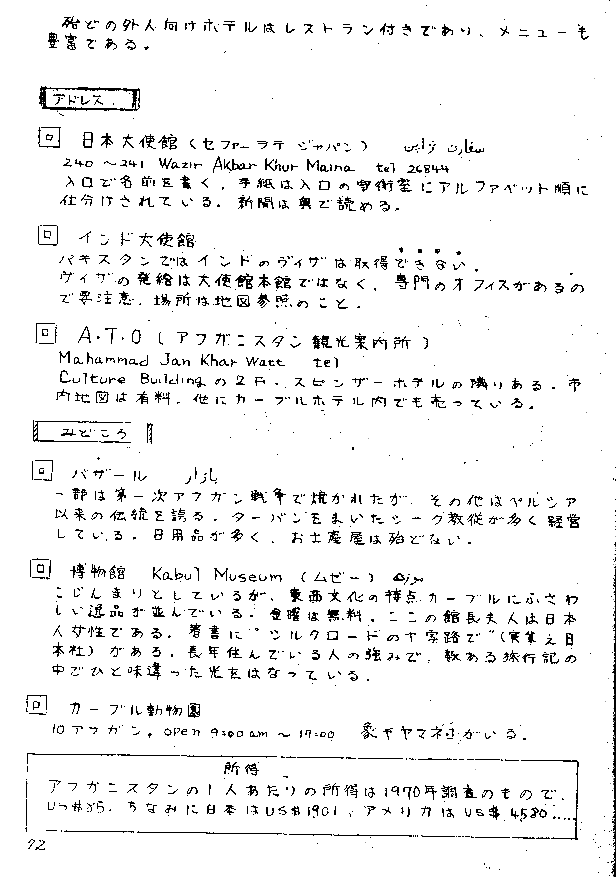 殆どの外人向けホテルはレストラン付きであり、メニューも
豊富である。
アドレス
回 日本大使館（セファーラテ ジャパン）
240〜241 Wazir Akbar Khur Maina tel 26844
入口で名前を書く。手紙は入口の守衛室にアルファベット順に
仕分けされている。新聞は奥で読める。
回 インド大使館
パキスタンではインドのヴィザは取得できない。
ヴィザの発給は大使館本館ではなく、専門のオフィスがあるの
で要注意。場所は地図参照のこと。
回 A・T・O（アフガニスタン観光案内所）
Mahammad Jan Khar Watt tel
Culture Buildingの2F. スピンザーホテルの隣りある。市
内地図は有料。他にカーブルホテル内でも売っている。
みどころ
回 バザール بازار
一部は第一次アフガン戦争で焼かれたが、その他はペルシア
以来の伝統を誇る。ターバンをまいたシーク教徒が多く経営
している。日用品が多く、お土産屋は殆どない。
回 博物館 Kabul Museum（ムゼー）
こじんまりとしているが、東西文化の接点カーブルにふさわ
しい遺品が並んでいる。金曜は無料。ここの館長夫人は日本
人女性である。著書に"シルクロードの十字路で"（実業之日
本社）がある。長年住んでいる人の強みで、数ある旅行記の
中でひと味違った光をはなっている。
回 カーブル動物園
10アフガン。open 9:00am〜17:00 象やヤマネコがいる。
所得
アフガニスタンの1人あたりの所得は1970年調査のもので、
US$85. ちなみに日本はUS$1901、アメリカはUS$4580.....
92